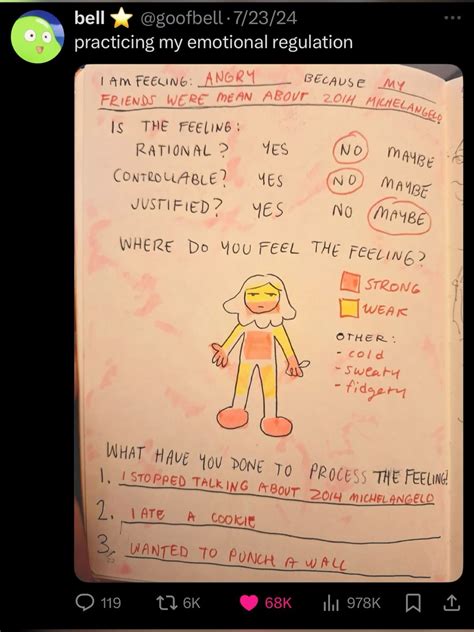 bell ⭐ @goofbell · 7/23/24
practicing my emotional regulation
I AM FEELING: ANGRY BECAUSE MY
FRIENDS WERE MEAN ABOUT 2014 MICHELANGELO
IS THE FEELING:
RATIONAL? YES NO MAYBE
CONTROLLABLE? YES NO MAYBE
JUSTIFIED? YES NO MAYBE
WHERE DO YOU FEEL THE FEELING?
STRONG
WEAK
OTHER:
- cold
- sweaty
- fidgety
WHAT HAVE YOU DONE TO PROCESS THE FEELING!
1. I STOPPED TALKING ABOUT 2014 MICHELANGELO
2. I ATE A COOKIE
3. WANTED TO PUNCH A WALL
119 6K 68K 978K